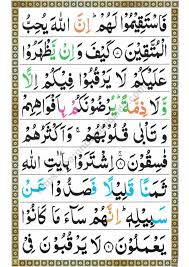 فَاسْتَقِيْمُوْا لَهُمْ ؕ اِنَّ اللّٰهَ يُحِبُّ
الْمُتَّقِيْنَ ۞ كَيْفَ وَ اِنْ يَّظْهَرُوْا
عَلَيْكُمْ لَا يَرْقُبُوْا فِيْكُمْ اِلًّا
وَّ لَا ذِمَّةً ؕ يُرْضُوْنَكُمْ بِاَفْوَاهِهِمْ
وَ تَاْبٰى قُلُوْبُهُمْ ۚ وَ اَكْثَرُهُمْ
فٰسِقُوْنَ ۞ اِشْتَرَوْا بِاٰيٰتِ اللّٰهِ
ثَمَنًا قَلِيْلًا فَصَدُّوْا عَنْ
سَبِيْلِهٖ ؕ اِنَّهُمْ سَآءَ مَا كَانُوْا
يَعْمَلُوْنَ ۞ لَا يَرْقُبُوْنَ فِيْ